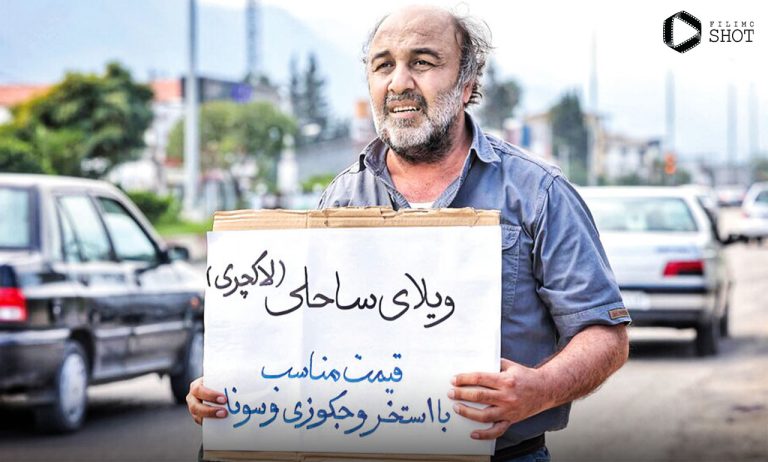 FILIMO
SHOT
ویلای ساحلی (لاکچری)
قیمت مناسب
با استخر و جکوزی و سونا